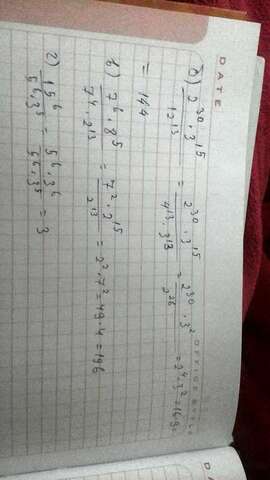 DATE
б) 2^30·3^15 / 12^13 = 2^30·3^15 / 4^13·3^13 = 2^30·3^2 / 2^26 = 2^4·3^2 = 16·9=
= 144
в) 7^6·8^5 / 7^4·2^13 = 7^2·2^15 / 2^13 = 2^2·7^2 = 49·4 = 196
г) 15^6 / 5^6·3^5 = 5^6·3^6 / 5^6·3^5 = 3